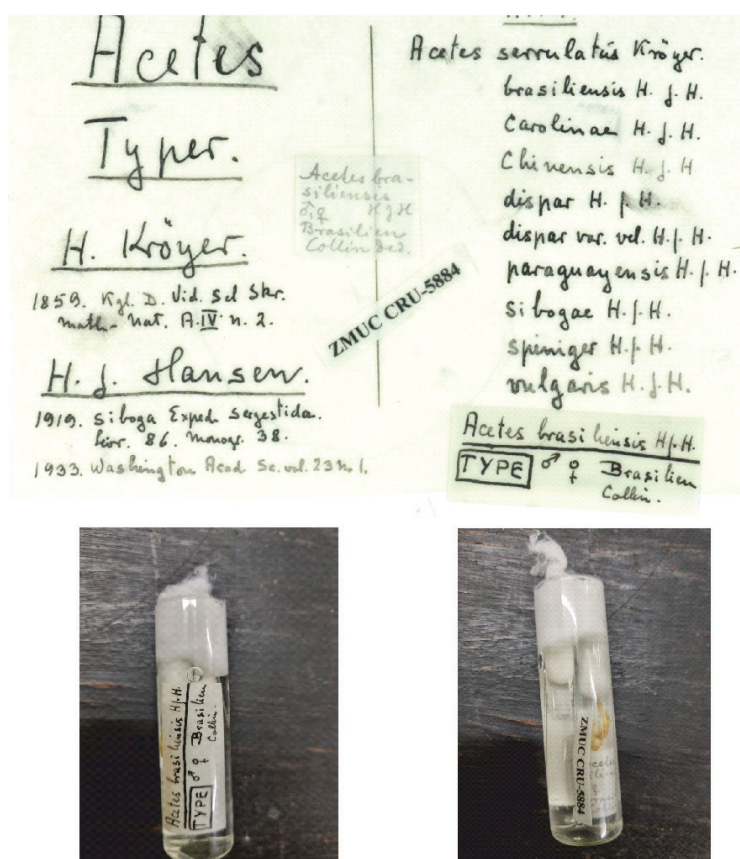 Acetes
Typer.
H. Kröyer.
1859. Kgl. D. Vid. Sel Skr.
math- Nat. A. IV n. 2.
H. J. Hansen.
1919. Siboga Exped. Sergestidae.
Livr. 86. Monogr. 38.
1933. Washington Acad Sc. vol. 23 No 1.
Acetes bra-
siliensis
♂,♀ HJH
Brasilien
Collin ded.
ZMUC CRU-5884
Acetes serrulatus Kröyer.
brasiliensis H. J. H.
Carolinae H. J. H.
Chinensis H. J. H
dispar H. J. H.
dispar var. vel. H. J. H.
paraguayensis H. J. H.
sibogae H. J. H.
spiniger H. J. H.
vulgaris H. J. H.
Acetes brasiliensis HJ. H.
TYPE ♂ ♀ Brasilien
Collin.
Acetes brasiliensis HJ. H.
TYPE ♂ ♀ Brasilien
Collin.
ZMUC CRU-5884